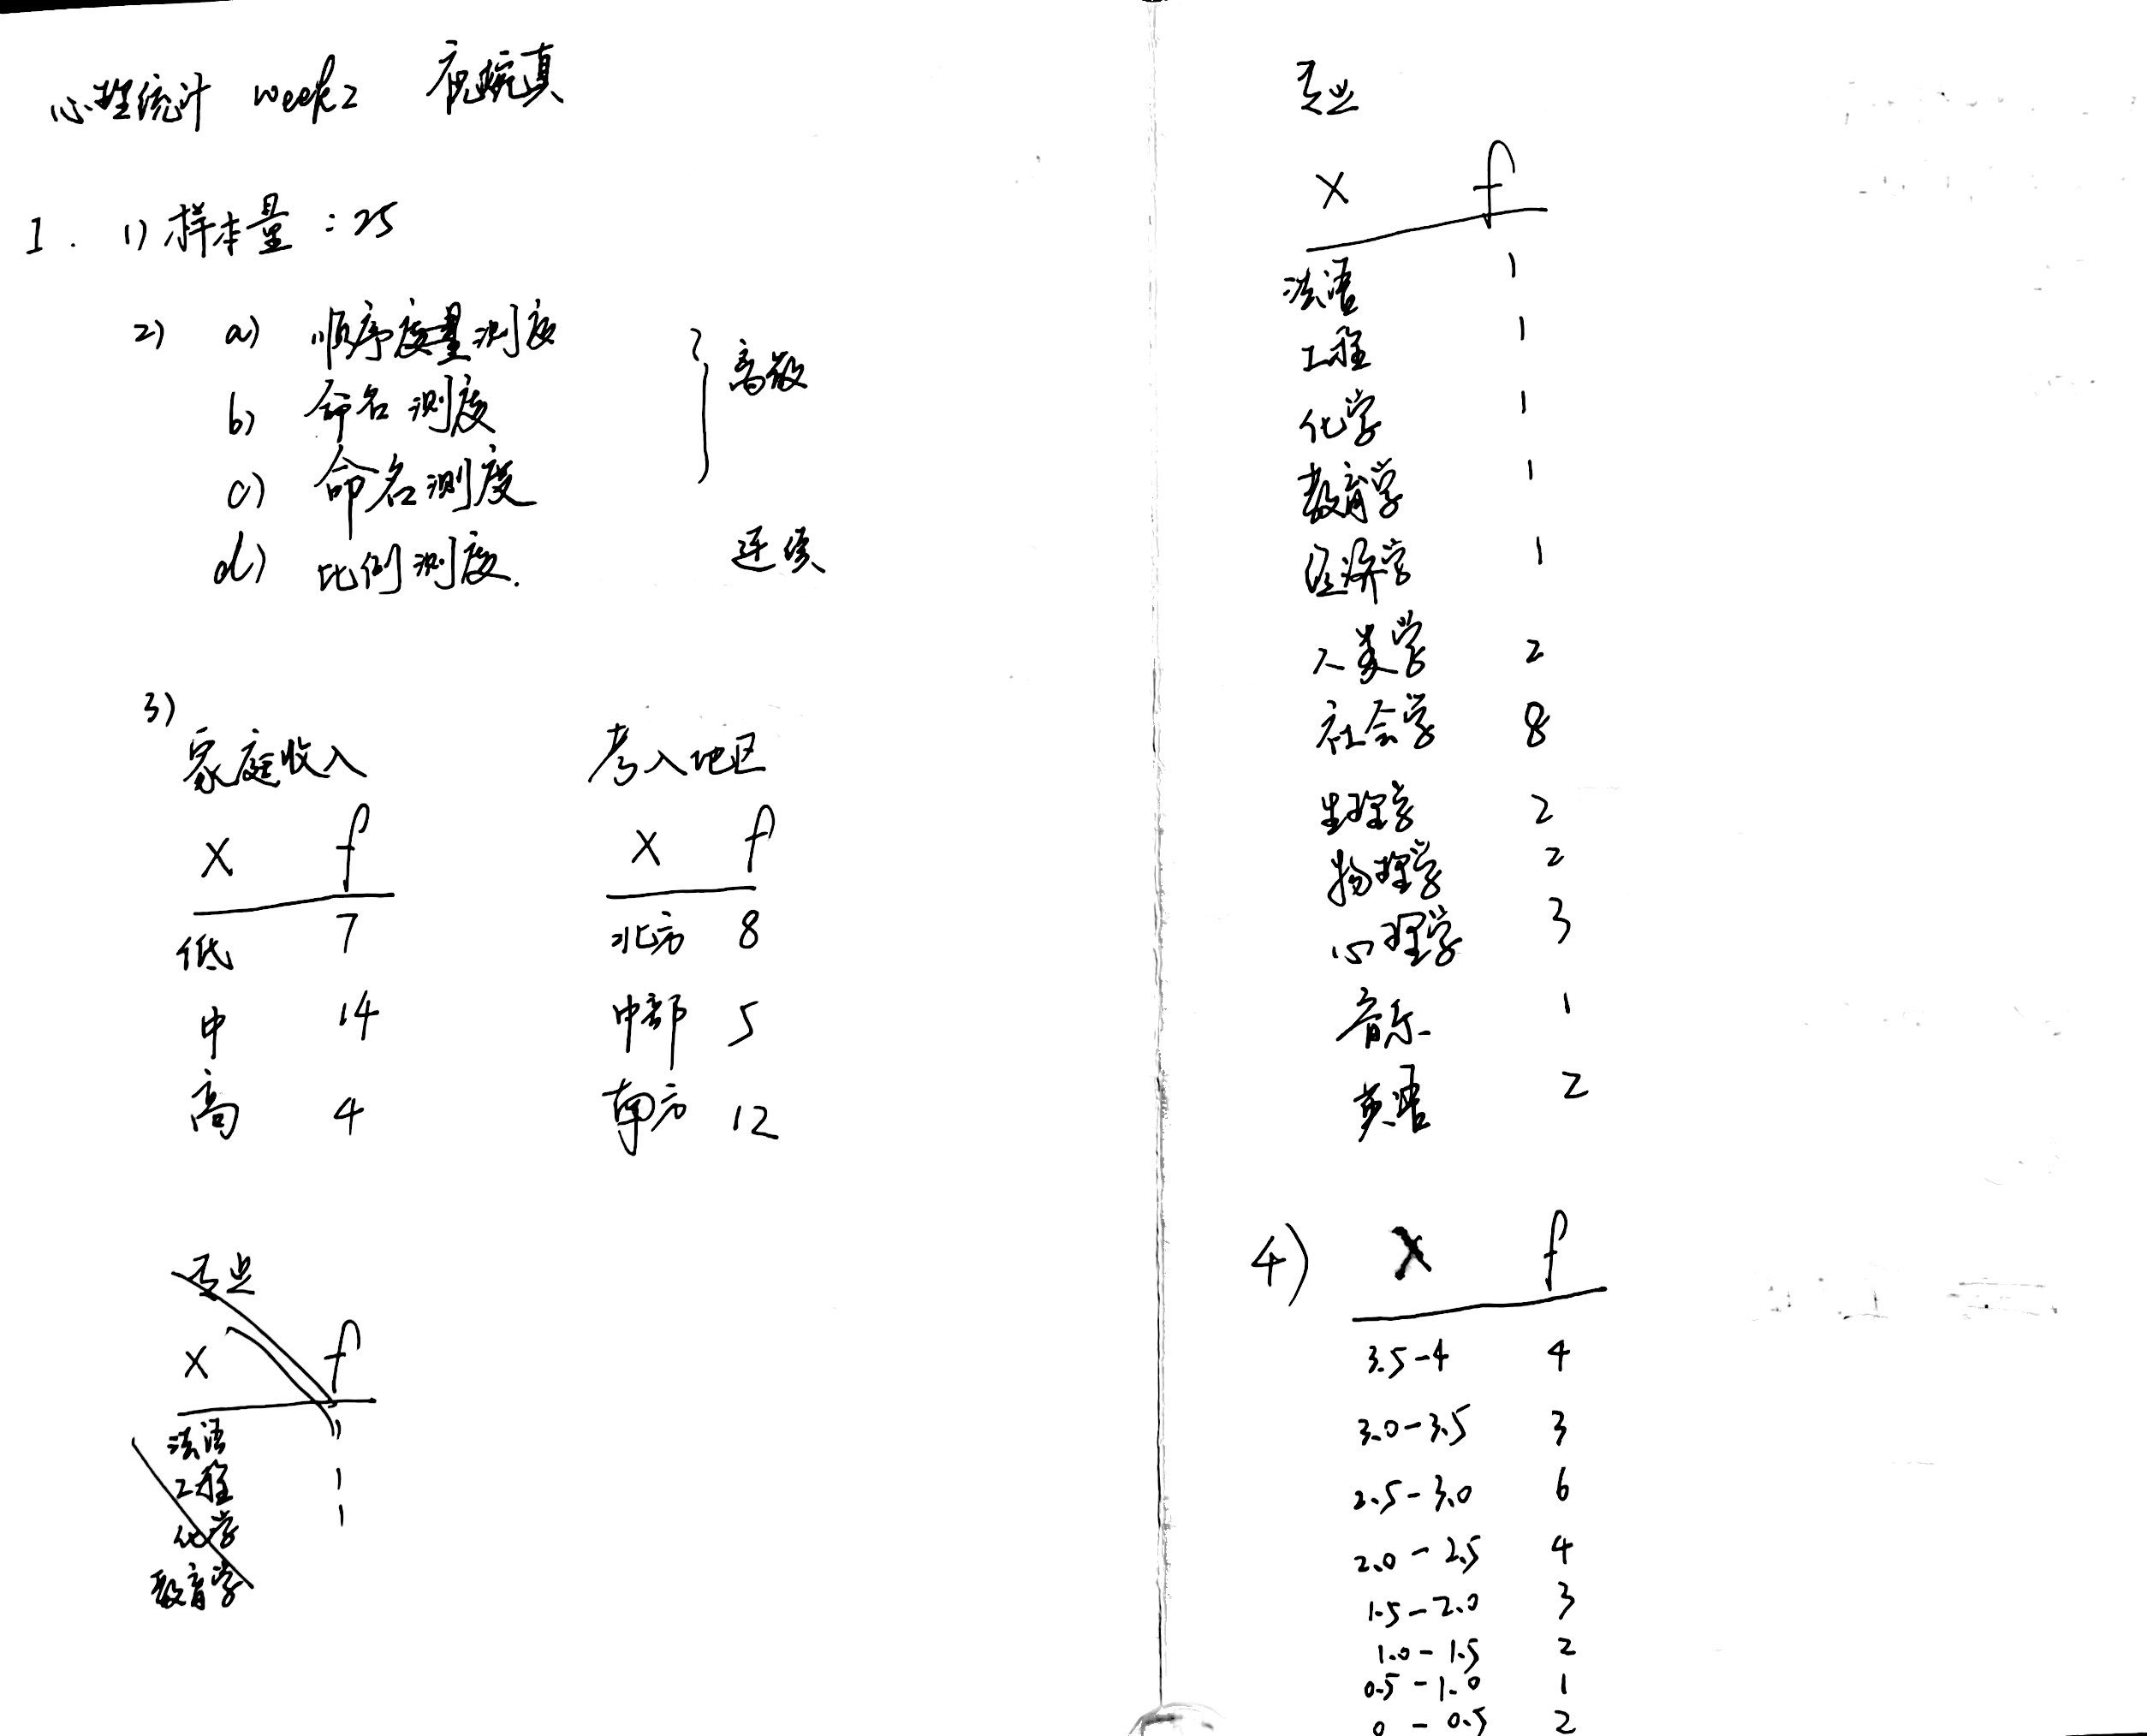 心理统计 week2 祝婉真
1. 1) 样本量:25
2) a) 顺序度量测度
b) 命名测度
离散
c) 命名测度
d) 比例测度. 连续
3)
家庭收入 考入地区
X f X f
低 7 北方 8
中 14 中部 5
高 4 南方 12
专业
X f
法语 1
工程 1
化学 1
教育学
专业
X f
法语 1
工程 1
化学 1
教育学 1
经济学 1
人类学 2
社会学 8
生理学 2
物理学 2
心理学 3
音乐 1
英语 2
4) X f
3.5-4 4
3.0-3.5 3
2.5-3.0 6
2.0-2.5 4
1.5-2.0 3
1.0-1.5 2
0.5-1.0 1
0-0.5 2